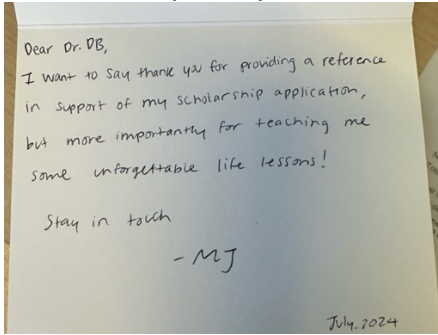 Dear Dr. DB,
I want to say thank you for providing a reference
in support of my scholarship application,
but more importantly for teaching me
some unforgettable life lessons!
Stay in touch
- MJ
July. 2024